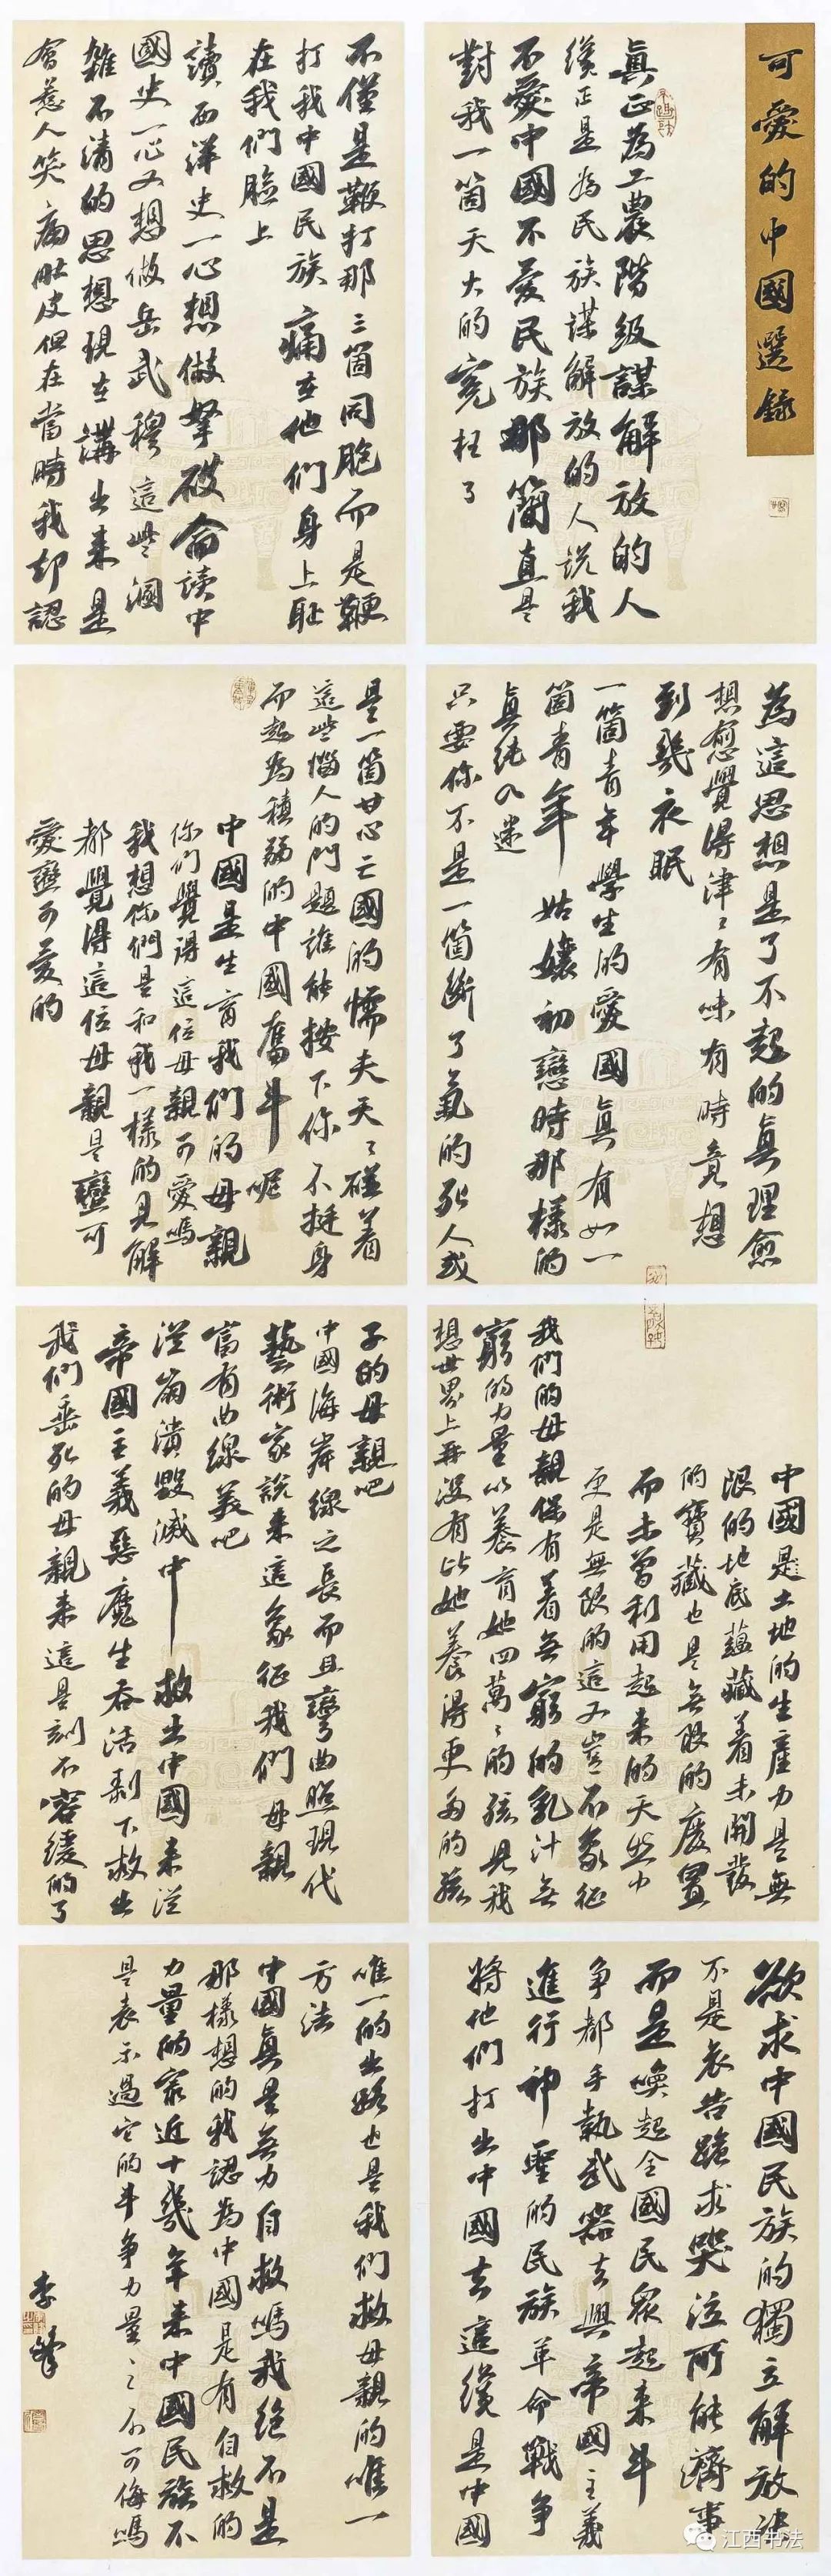 可愛的中國選錄
真正為工農階級謀解放的人
纔正是為民族謀解放的人說我
不愛中國不愛民族那簡直是
對我一箇天大的寃枉了
不僅是鞭打那三箇同胞而是鞭
打我中國民族痛在他們身上恥
在我們臉上
讀西洋史一心想做拿破侖讀中
國史一心又想做岳武穆這些溷
雜不清的思想現在講出来是
會惹人笑痛肚皮但在當時我却認
為這思想是了不起的真理愈
想愈覺得津々有味有時竟想
到幾夜眠
一箇青年學生的愛國真有如一
箇青年姑孃初戀時那樣的
真純入迷
只要你不是一箇斷了氣的死人或
是一箇甘心亡國的懦夫天々碰着
這些惱人的問題誰能按下你不挺身
而起為積弱的中國奮斗呢
中國是生育我們的母親
你們覺得這位母親可愛嗎
我想你們是和我一樣的見解
都覺得這位母親是蠻可
愛蠻可愛的
中國是土地的生產力是無
限的地底蘊藏着未開發
的寶藏也是無限的廢置
而未曾利用起来的天然力
更是無限的這又豈不象征
我們的母親保有着無窮的乳汁無
窮的力量以養育她四萬々的孩兒我
想世界上再沒有比她養得更多的孩
子的母親吧
中國海岸線之長而且彎曲照現代
藝術家說来這象征我們母親
富有曲線美吧
從崩潰毀滅中救出中國来從
帝國主義惡魔生吞活剥下救出
我們垂死的母親来這是刻不容緩的了
欲求中國民族的獨立解放决
不是哀告跪求哭泣所能濟事
而是喚起全國民眾起来斗
争都手執武器去與帝國主義
進行神聖的民族革命戰争
將他們打出中國去這纔是中國
唯一的出路也是我們救母親的唯一
方法
中國真是無力自救嗎我絕不是
那樣想的我認為中國是有自救的
力量的最近十幾年来中國民族不
是表示過它的斗争力量之不可侮嗎
李
江西书法